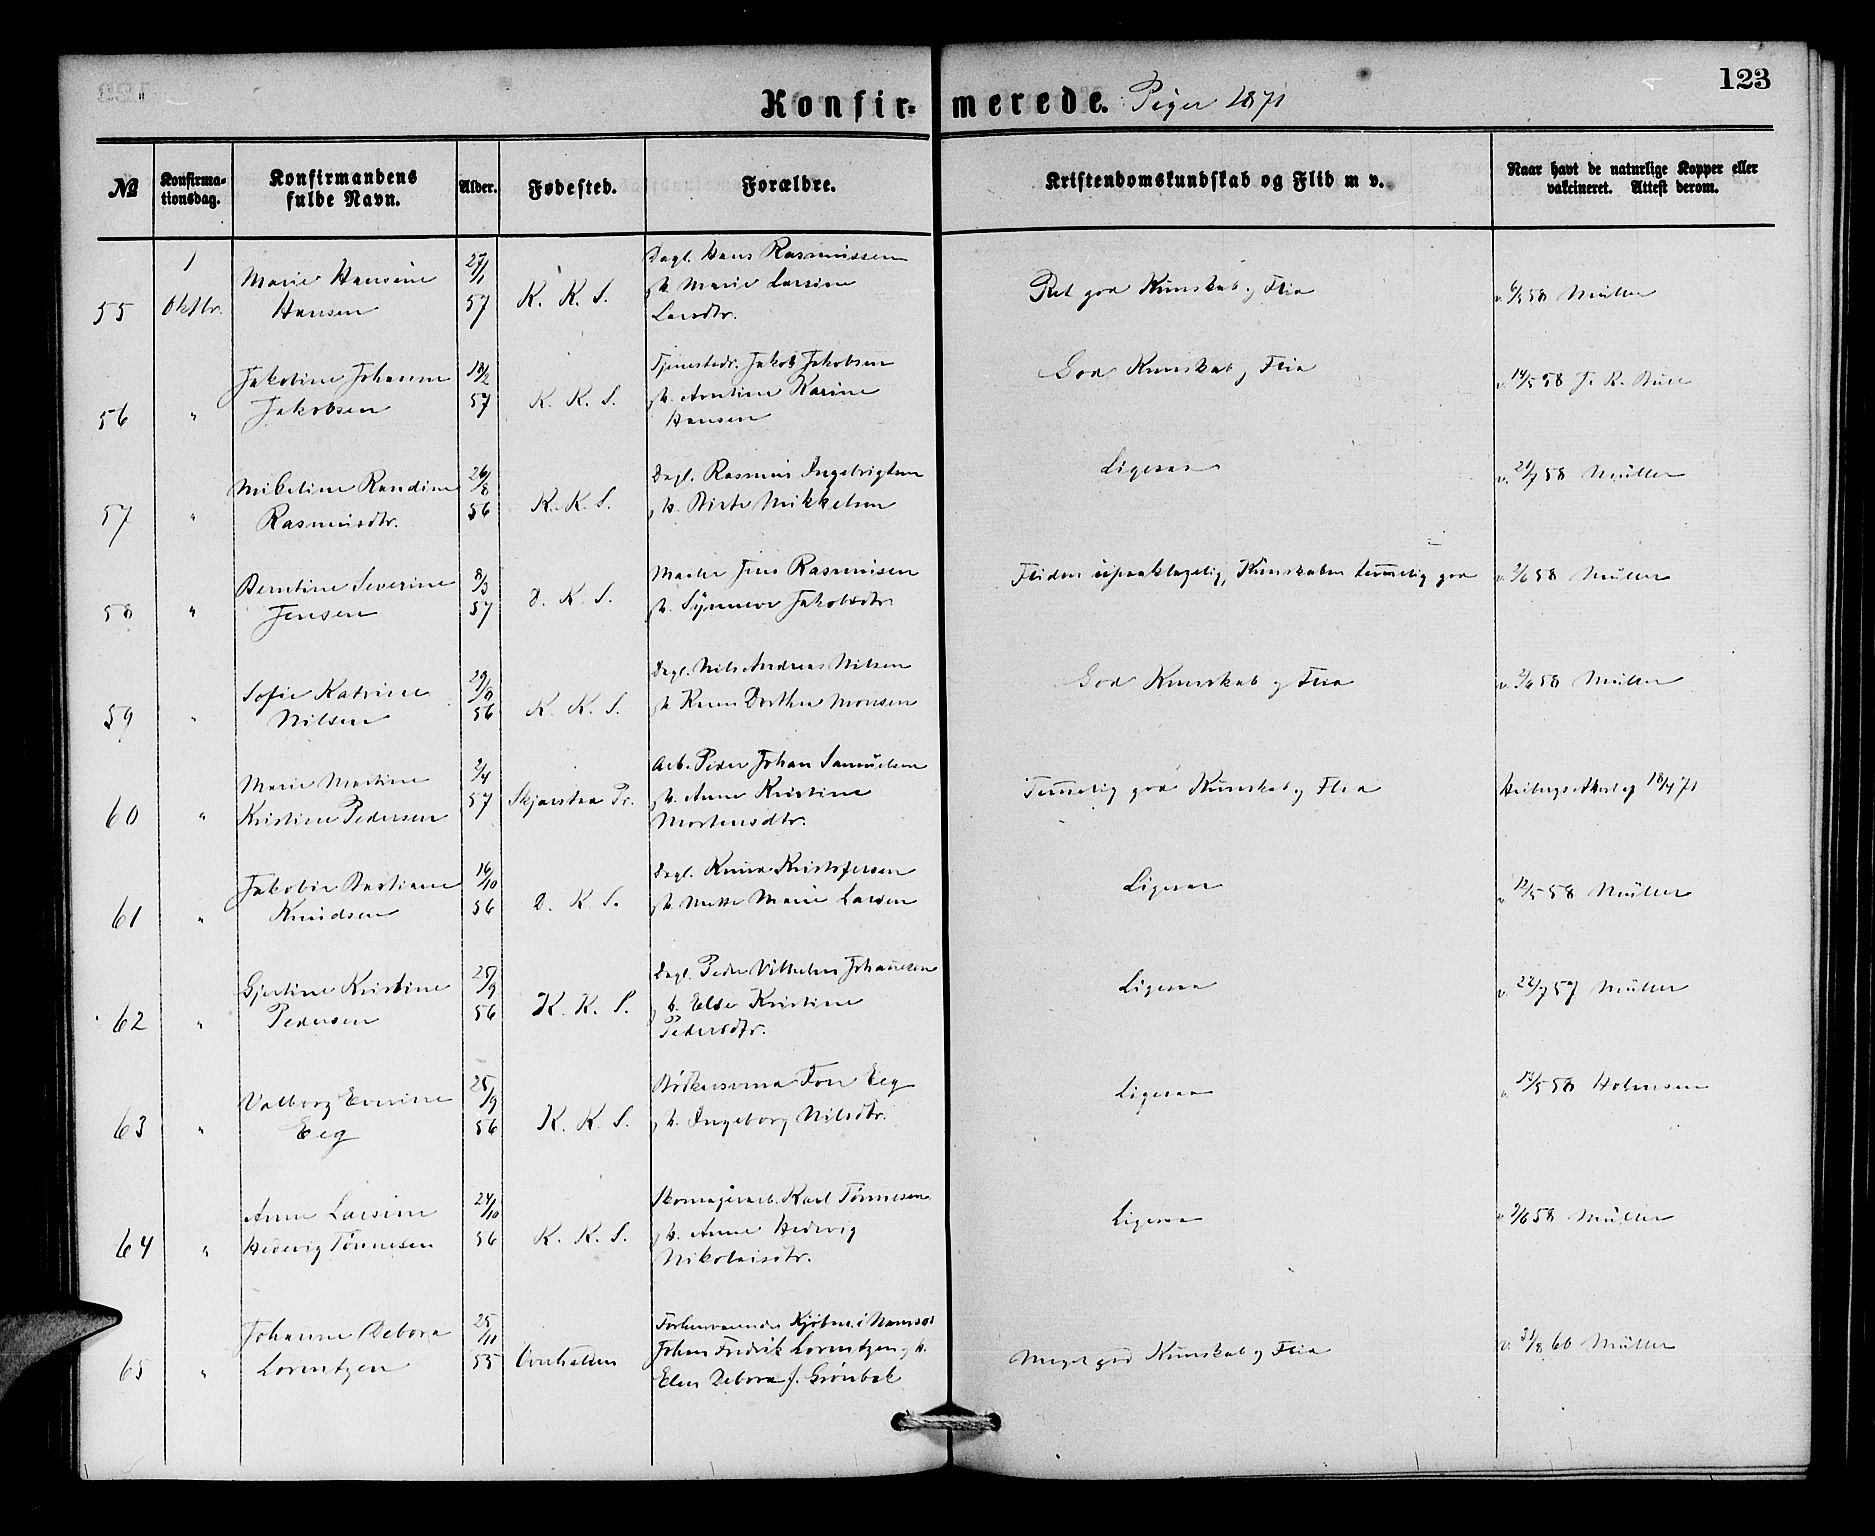 123
Konfirmerede. Piger 1871
№
Konfirmationsdag.
Konfirmandens fulde Navn.
Alder.
Fødested.
Forældre.
Kristendomskundskab og Flid m v.
Naar havt de naturlige Kopper eller vakcineret. Attest derom.
55 1 Oktbr. Marie Hansine Hansen 27/1 57 K. K. S. Dagl. Hans Rasmussen h. Marie Larsine Larsdtr. Ret god Kunskab og Flid v. 6/5 58 Müller
56 " Jakobine Johanne Jakobsen 18/2 57 K. K. S. Tjenestedr. Jakob Jakobsen h. Arntine Karine Hansen God Kunskab og Flid v. 14/5 58
57 " Randine Rasmusdtr. 26/8 56 K. K. S. Dagl. Rasmus Ingebrigtsen h. Birte Mikkelsen Ligesaa v. 21/7 58 Müller
58 " Berntine Severine Jensen 8/3 57 D. K. S. Jens Rasmussen h. Synneve Jakobsdtr. Fliden upaaklagelig, Kunskaben temmelig god v. 2/6 58 Müller
59 " Sofie Katrine Nilsen 29/9 56 K. K. S. Dagl. Nils Andreas Nilsen h. Karen Dorthea Monsen God Kunskab og Flid v. 2/6 58 Müller
60 " Marie Martine Kristine Pedersen 2/4 57 Skjærstad Pr. Arb. Peder Johan Samuelsen h. Anne Kristine Mortensdtr. Temmelig god Kunskab og Flid Heibergs Attest af 18/4 71
61 " Jakobie Bastiane Knudsen 16/10 56 D. K. S. Dagl. Knud Kristofersen h. Mette Marie Larsen Ligesaa v. 12/5 58 Müller
62 " Gjertine Kristine Pedersen 25/9 56 K. K. S. Dagl. Peder Vilhelm Johannesen h. Else Kristine Pedersdtr. Ligesaa v. 22/7 57 Müller
63 " Valborg Eeg 25/9 56 K. K. S. Bødkersvend Tore Eeg h. Ingeborg Nilsdtr. Ligesaa v. 13/5 58 Holmsen
64 " Anne Larsine Hedevig Tønnesen 24/10 56 K. K. S. Skomagerarb. Karl Tønnesen h. Anne Hedevig Nikolaisdtr. Ligesaa v. 2/6 58 Müller
65 " Johanne Debora Lorentzen 25/11 55 Overhalden Forhenværende Kjøbm. i Namsos Johan Fredrik Lorentzen og h. Elen Debora f. Grønbek Meget god Kunskab og Flid v. 31/8 60 Müller